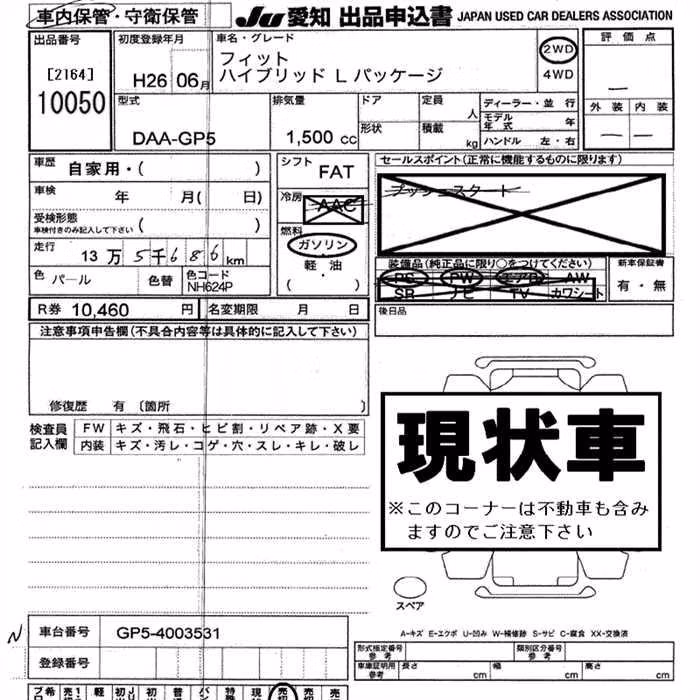 車内保管・守衛保管
JU 愛知 出品申込書 JAPAN USED CAR DEALERS ASSOCIATION
出品番号
[2164]
10050
初度登録年月
H26 06月
車名・グレード
フィット
ハイブリッド L パッケージ
2WD
4WD
評価点
外装 内装
型式
DAA-GP5
排気量
1,500 cc
ドア
形状
定員 人
積載 kg
ディーラー・並行
モデル年式 年
ハンドル 左・右
車歴 自家用・( )
車検 年 月( 日)
受検形態
車検付きのみ記入して下さい ( )
走行 13万5千686km
色 パール 色替 色コード NH624P
シフト
FAT
冷房
AAC
燃料
ガソリン
軽・油
( )
セールスポイント(正常に機能するものに限ります)
プッシュスタート
装備品(純正品に限り○をつけてください)
PS PW エアB AW
SR ナビ TV カワシート
新車保証書
有・無
R券 10,460 円 名変期限 月 日
後日品
注意事項申告欄(不具合内容等は具体的に記入して下さい)
修復歴 有 〔箇所 〕
検査員記入欄
FW キズ・飛石・ヒビ割・リペア跡・X要
内装 キズ・汚レ・コゲ・穴・スレ・キレ・破レ
現状車
※このコーナーは不動車も含み
ますのでご注意下さい
スペア
A-キズ E-エクボ U-凹み W-補修跡 S-サビ C-腐食 XX-交換済
N
車台番号 GP5-4003531
登録番号
形式指定番号参考
類別区分番号参考
車庫証明用参考 長さ cm 幅 cm 高さ cm